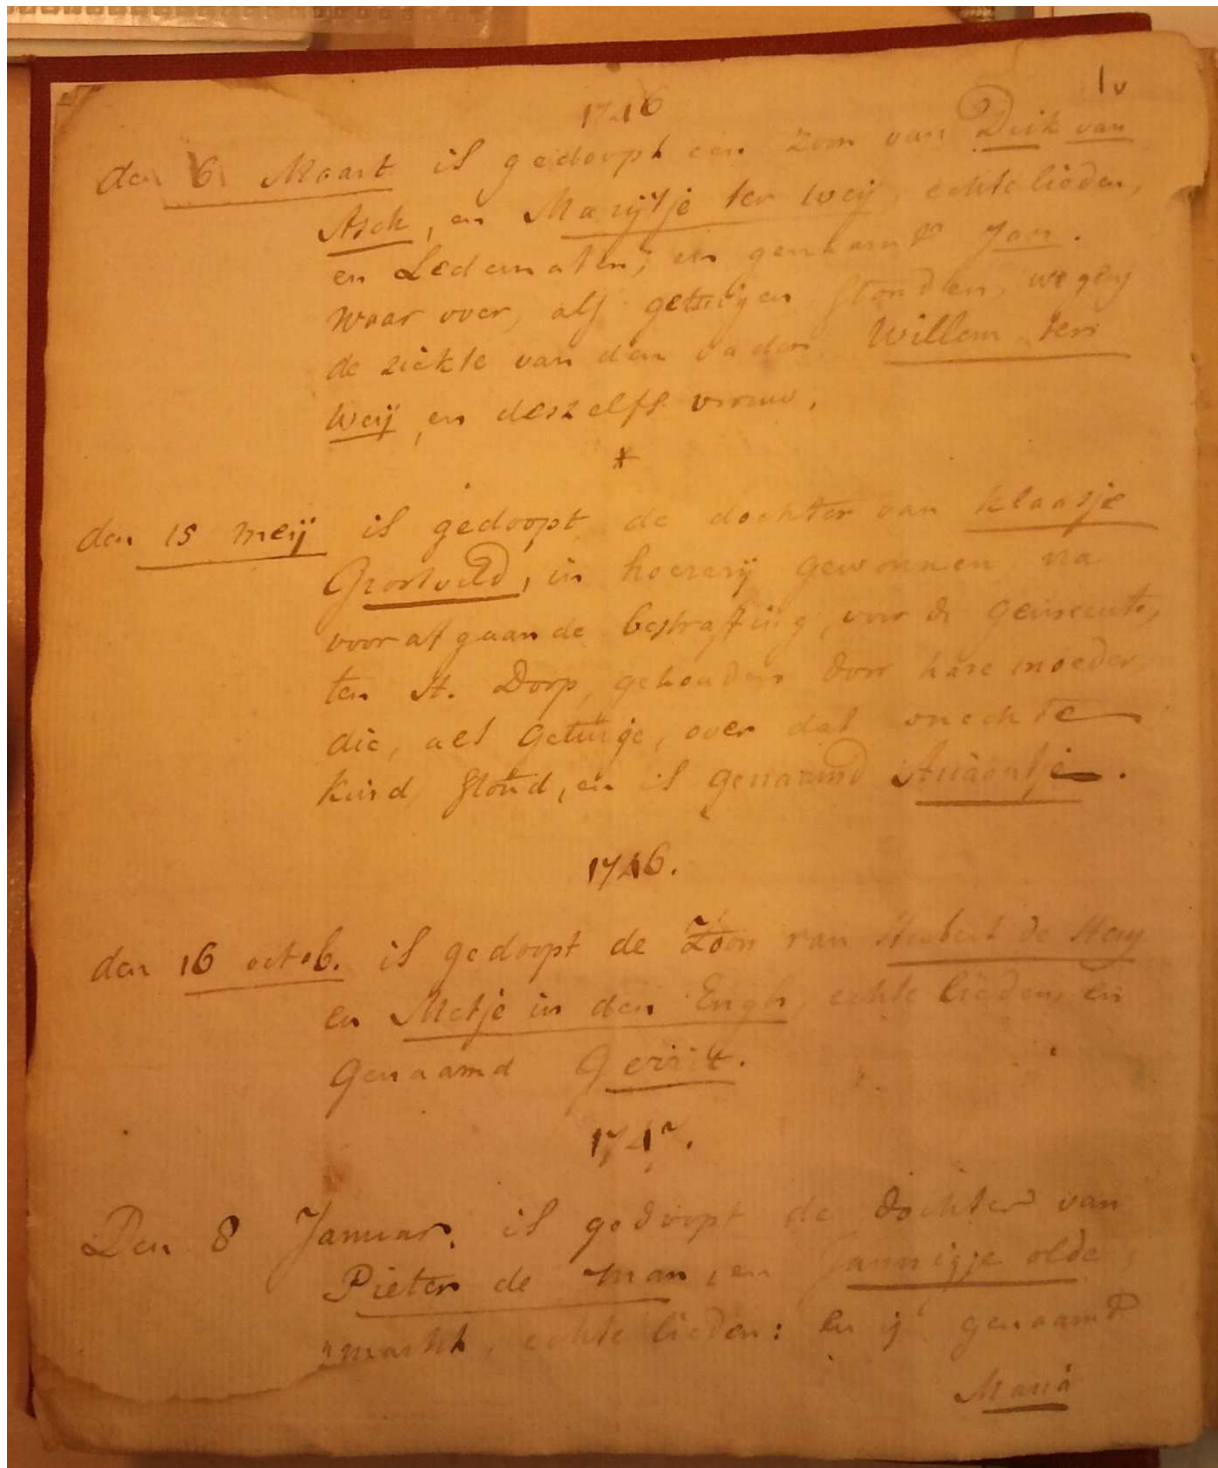 1v
1746
den 6 Maart is gedoopt een zoon van Dirk van
Asch, en Marijtje ter weij, echte lieden,
en Ledematen; en genaamd Jan.
waar over, als getuigen stonden, wegens
de ziekte van den vader Willem ter
weij, en deszelfs vrouw.
*
den 15 meij is gedoopt de dochter van klaasje
Grootveld, in hoererij gewonnen, na
voorafgaande bestraffing, voor de gemeente,
ten St. Dorp, gehouden door hare moeder
die, als getuige, over dat onechte
kind stond, en is genaamd
1746.
den 16 octob. is gedoopt de Zoon van Huibert de Heuy
en Metje in den Engh, echte lieden, en
Genaamd Gerrit.
1747.
Den 8 Januar. is gedoopt de dochter van
Pieter de Man, en Jannigje olde
smacht, echte lieden: en is genaamd
Maria